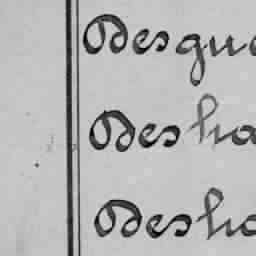 Desgue
Desha
Desha